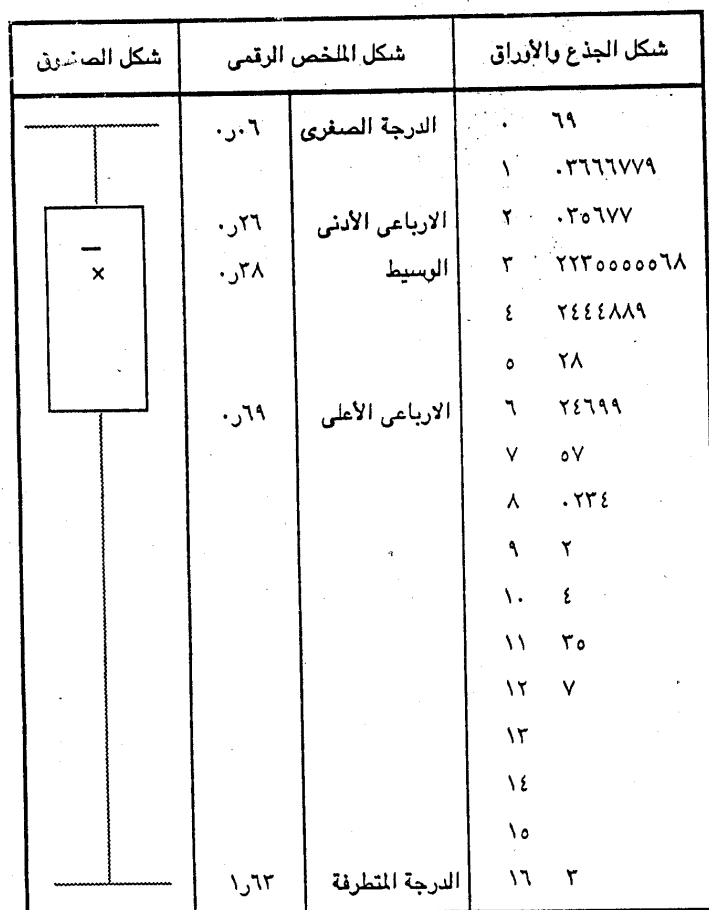 شكل الجذع والأوراق	شكل الملخص الرقمى	شكل الصندوق
٠ ٦٩	الدرجة الصغرى	٠٫٠٦
١ ٠٣٦٦٦٧٧٩
٢ ٠٣٥٦٧٧	الارباعى الأدنى	٠٫٢٦
٣ ٢٢٣٥٥٥٥٥٦٨	الوسيط	٠٫٣٨	×
٤ ٢٤٤٤٨٨٩
٥ ٢٨
٦ ٢٤٦٩٩	الارباعى الأعلى	٠٫٦٩
٧ ٥٧
٨ ٠٢٣٤
٩ ٢
١٠ ٤
١١ ٣٥
١٢ ٧
١٣
١٤
١٥
١٦ ٣	الدرجة المتطرفة	١٫٦٣